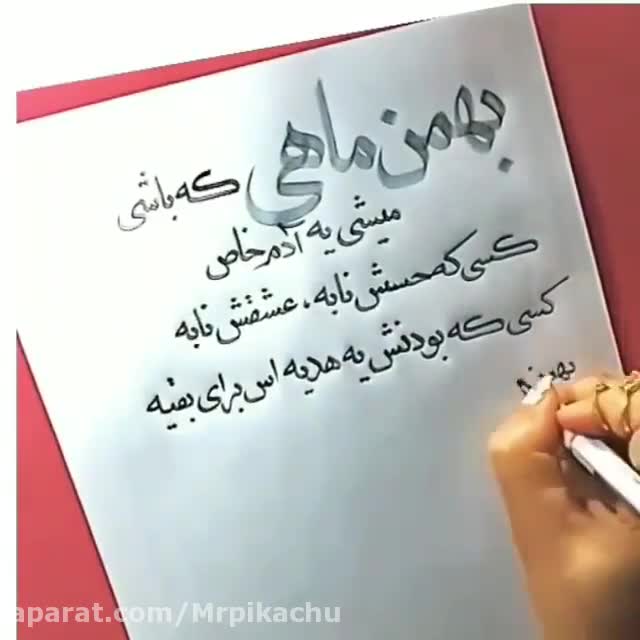 بهمن ماهی که باشی
میشی یه آدم خاص
کسی که حسش نابه، عشقش نابه
کسی که بودنش یه هدیه اس برای بقیه
aparat.com/Mrpikachu